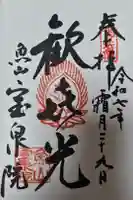 奉拝
令和七年
霜月二十九日
歓喜光
魚山宝泉院